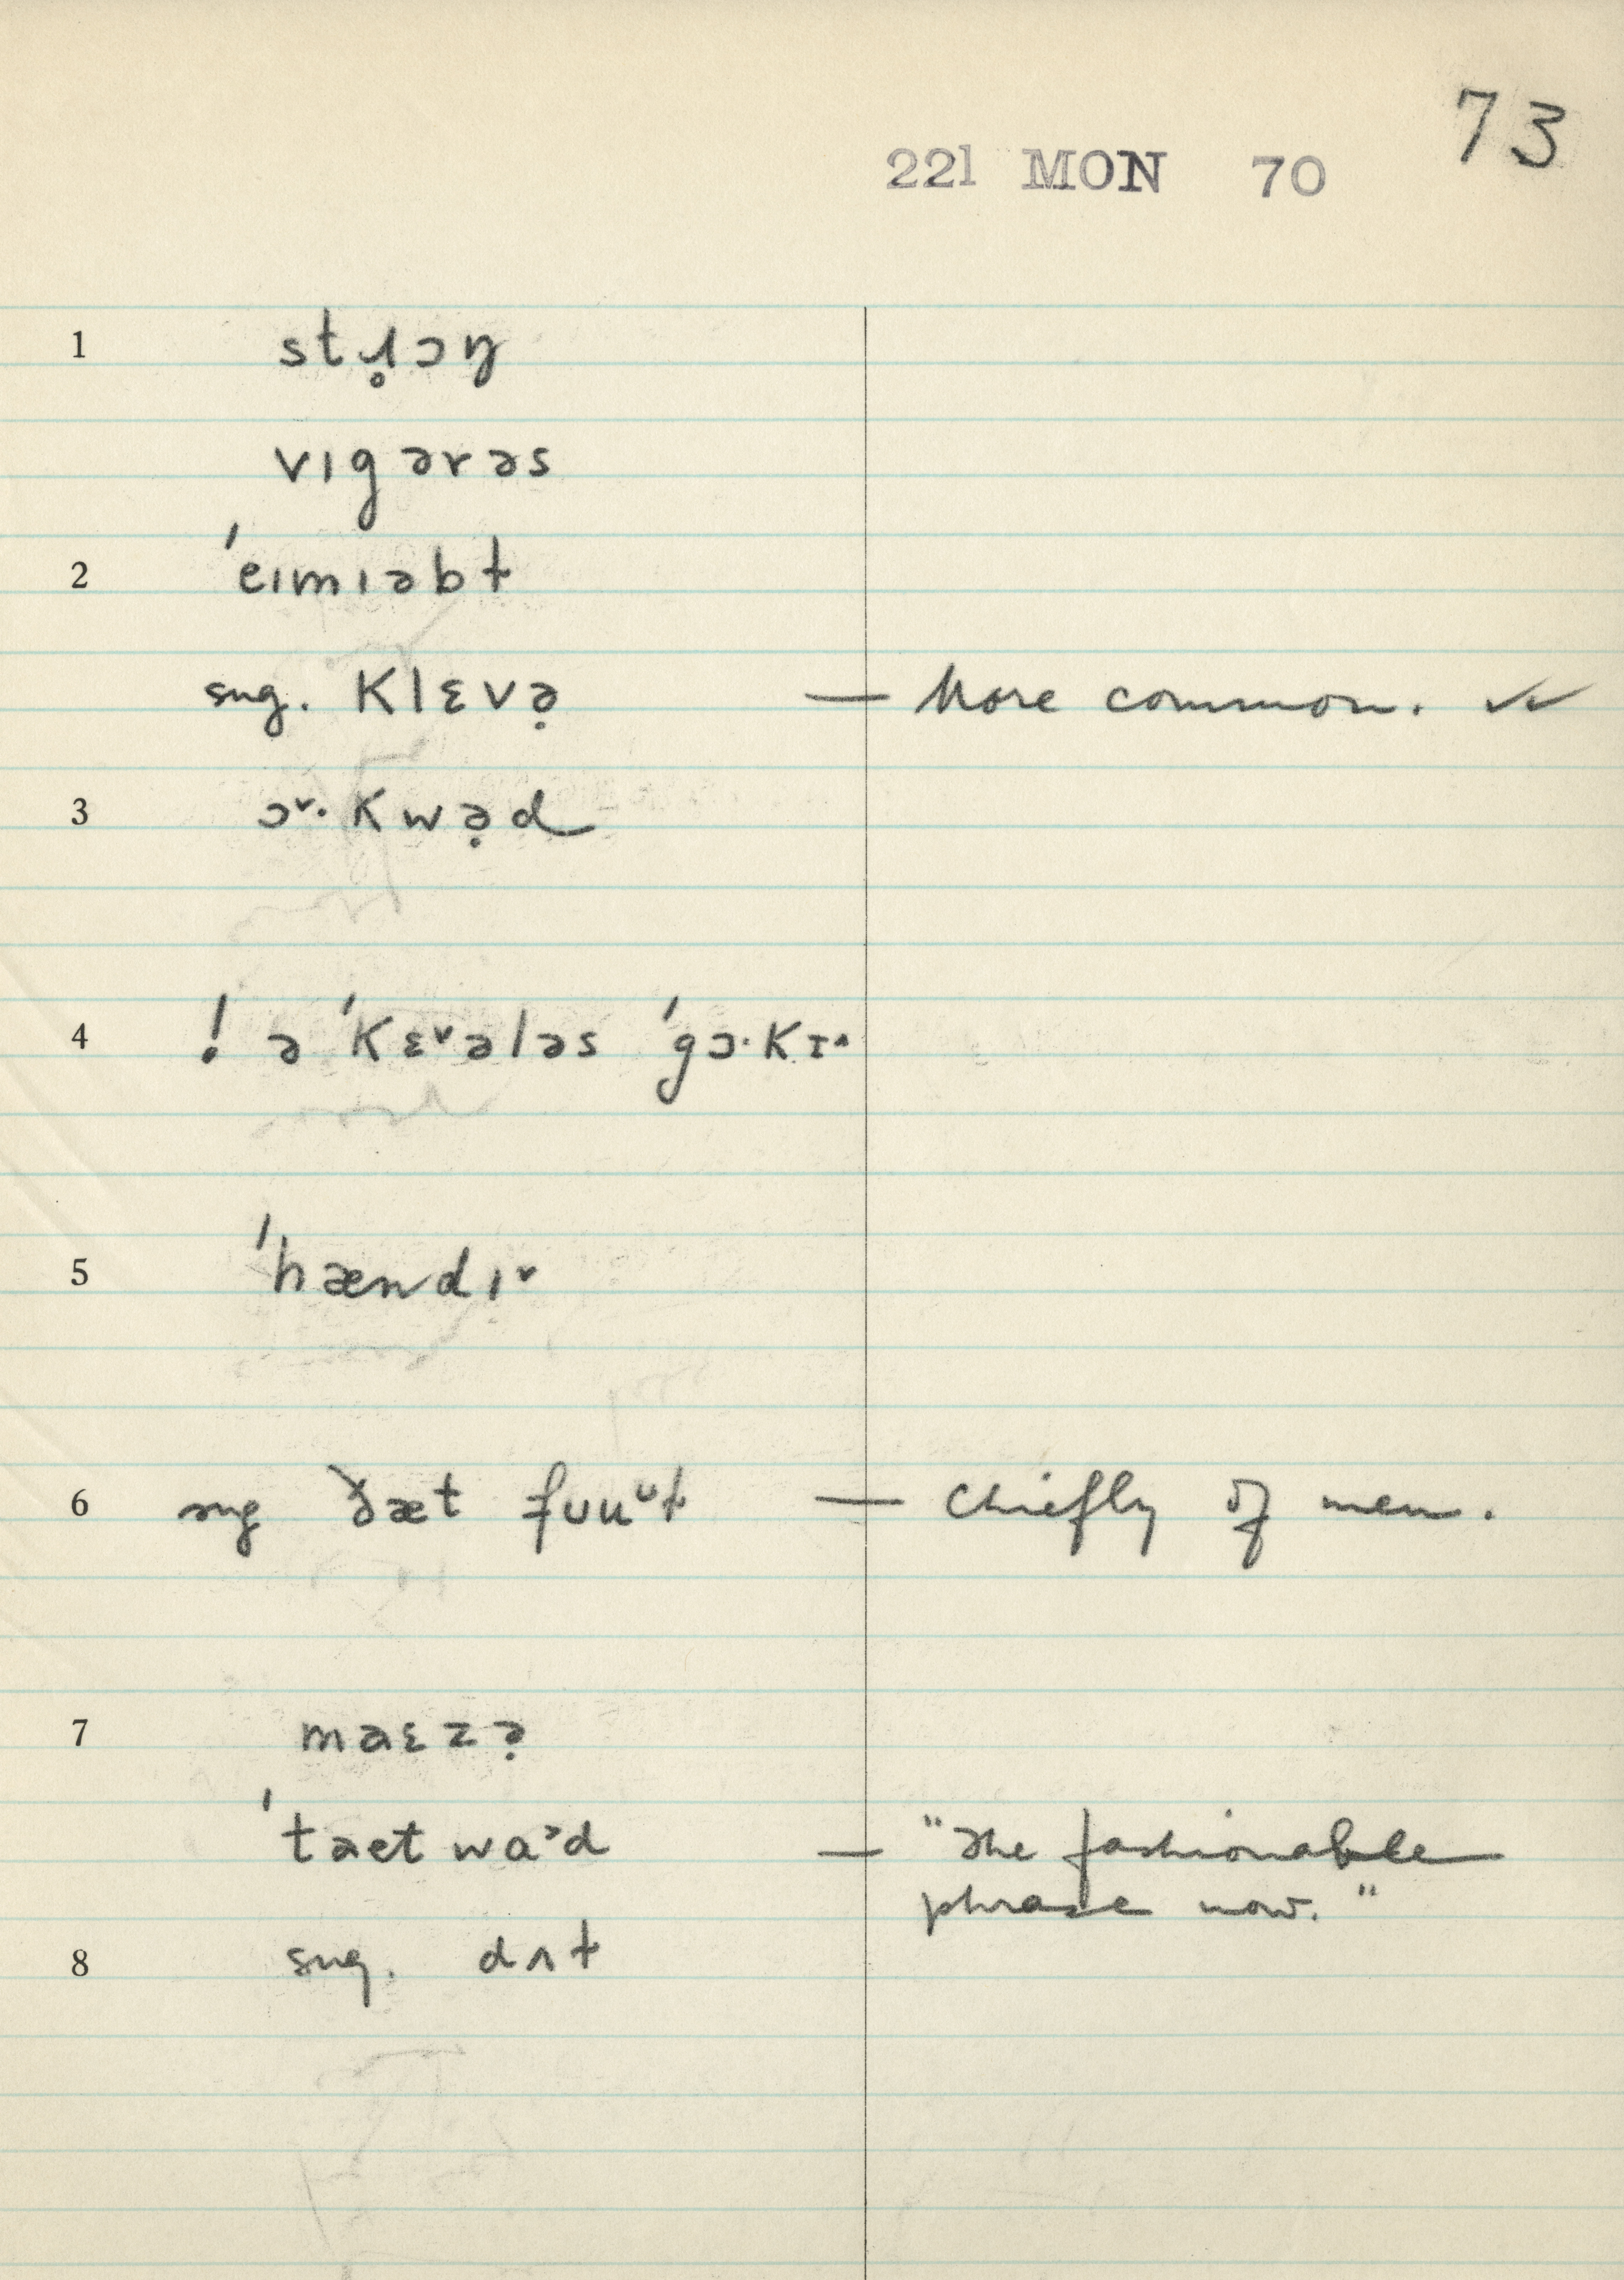 73
221 MON 70
1 stɹ̥ɔŋ
vɪgərəs
2 ˈeɪmɪəbɫ
sug. klɛvə̣ — More common. ✓✓
3 ɔ˅·kwə̣d
4 ! ə ˈkɛ˅ələs ˈgɔ·kɪ˄
5 ˈhændɪ˅
6 sug ðæt fʊuᵘɫ — Chiefly of men.
7 maɛzə̣
ˈtaetwaᵊd — "The fashionable
phrase now."
8 sug. dʌɫ